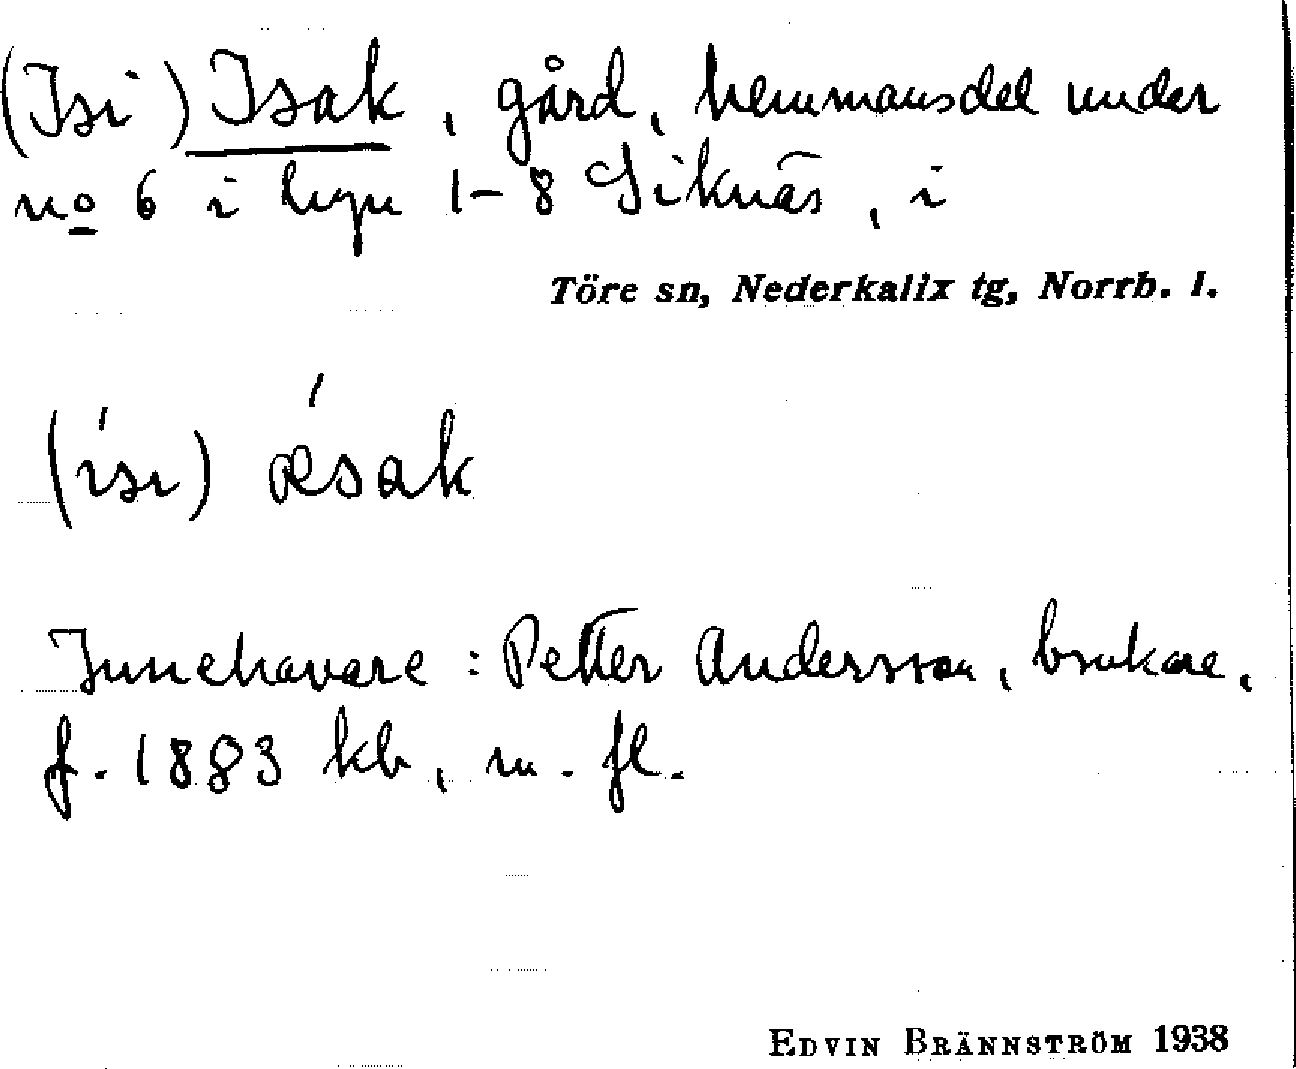 (Isi) Isak, gård, hemmansdel under
no 6 i byn 1-8 Siknäs, i
Töre sn, Nederkalix tg, Norrb. l.
(ísı) ǽsak
Innehavare: Petter Andersson, brukare,
f. 1883 kb, m. fl.
EDVIN BRÄNNSTRÖM 1938